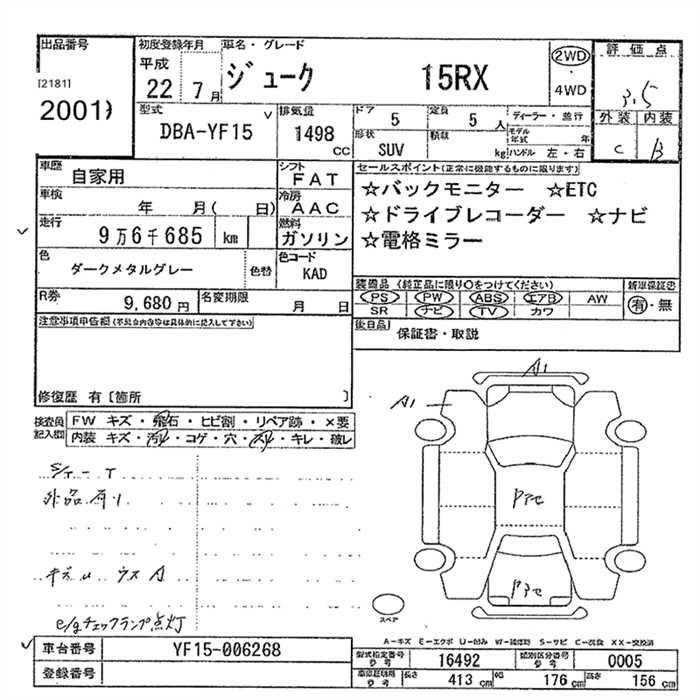 出品番号 初度登録年月 車名・グレード 2WD 評価点
平成
[2181]
22 7月 ジューク 15RX 4WD 3.5
2001 型式 排気量 ドア 5 定員 5人 ディーラー・並行 外装 内装
DBA-YF15 1498 cc 形状 SUV 積載 kg モデル年式 年 C B
ハンドル 左・右
車歴 自家用 シフト FAT セールスポイント(正常に機能するものに限ります)
車検 年 月( 日) 冷房 AAC ☆バックモニター ☆ETC
走行 9万6千685 km 燃料 ガソリン ☆ドライブレコーダー ☆ナビ
☆電格ミラー
色 ダークメタルグレー 色替 色コード KAD
装備品 (純正品に限り○をつけてください) 新車保証書
R券 9,680円 名変期限 月 日 PS PW ABS エアB AW 有・無
SR ナビ TV カワ
注意事項申告欄(不具合内容等は具体的に記入して下さい) 後日品 保証書・取説
修復歴 有〔箇所 〕
A1
A1
検査員記入欄 FW キズ・飛石・ヒビ割・リペア跡・×要
内装 キズ・汚れ・コゲ・穴・スレ・キレ・破レ
外品有り
Pﾌﾟｨｾ
キズ U ウス A
e/gチェックランプ点灯
スペア
A-キズ E-エクボ U-凹み W-補修跡 S-サビ C-腐食 XX-交換済
車台番号 YF15-006268 型式指定番号 参考 16492 類別区分番号 参考 0005
登録番号 車検証明用 参考 長さ 413cm 幅 176cm 高さ 156cm